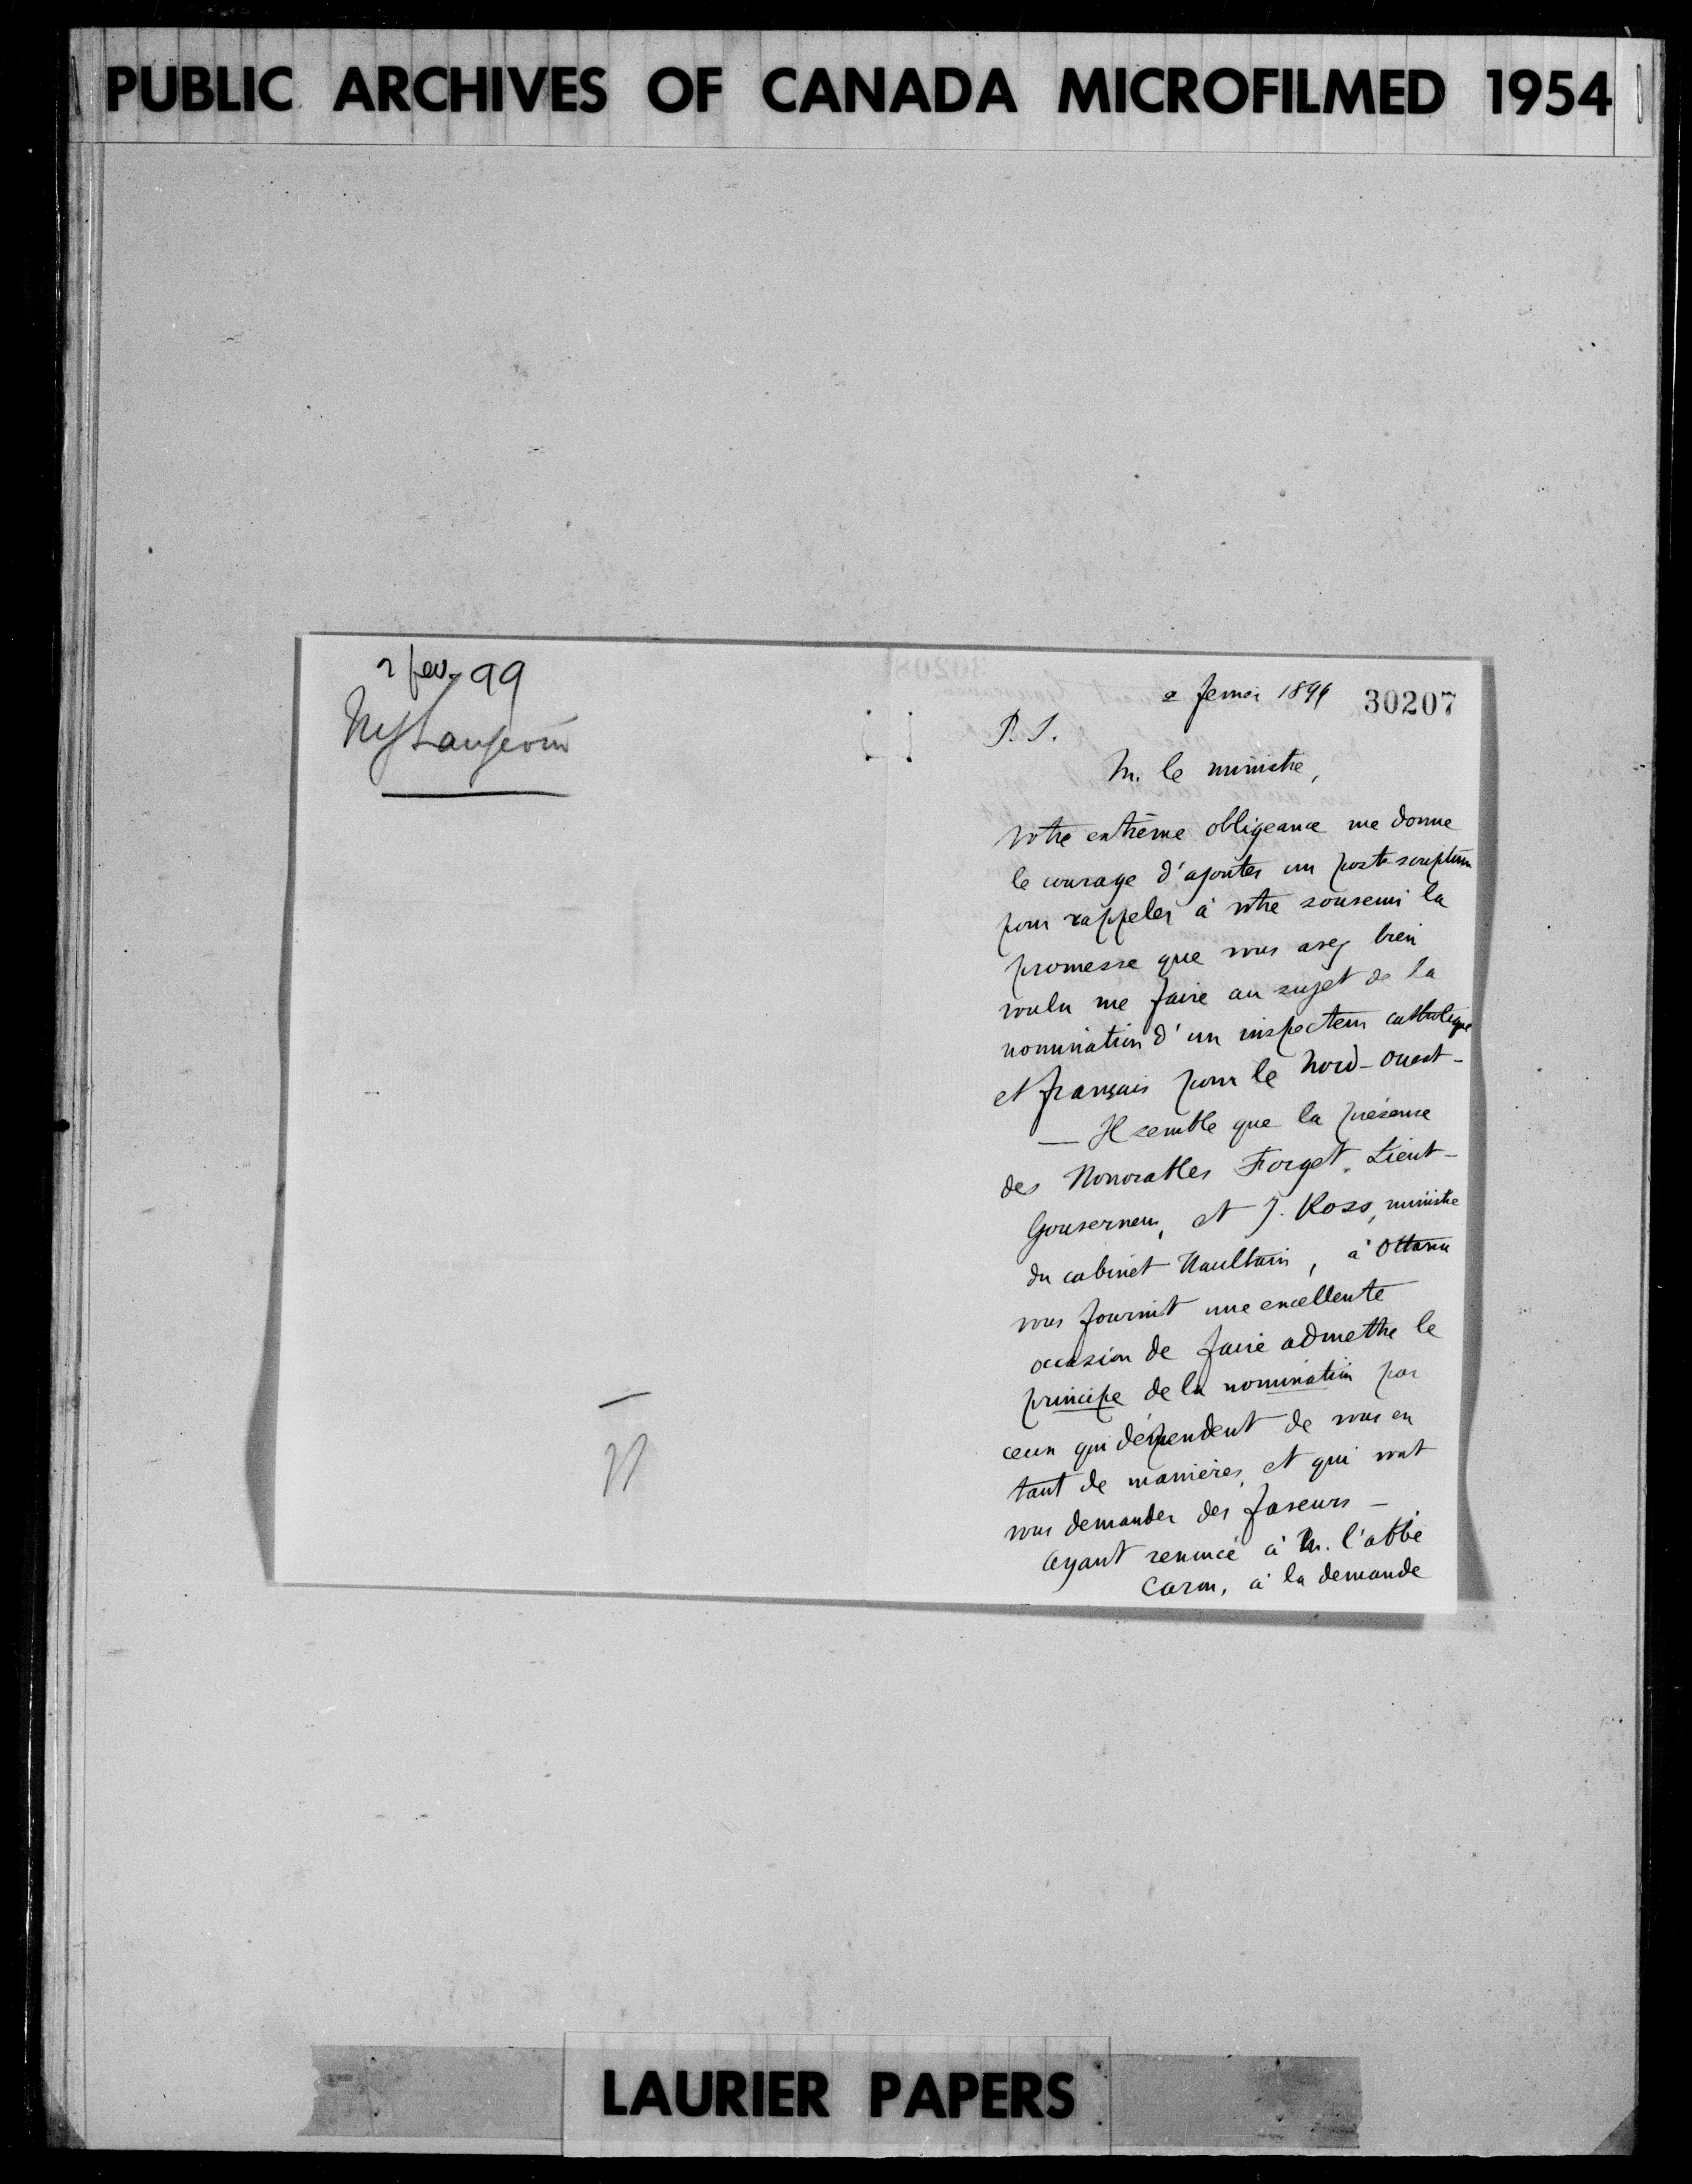 PUBLIC ARCHIVES OF CANADA MICROFILMED 1954
2 fev. 99
Mgr Langevin
2 fevrier 1899 30207
P. S.
M. le ministre,
Votre extrême obligeance me donne
le courage d'ajouter un post-scriptum
pour rappeler à votre souvenir la
promesse que vous avez bien
voulu me faire au sujet de la
nomination d'un inspecteur catholique
et français pour le Nord-Ouest-
— Il semble que la présence
des Honorables Forget, Lieut-
Gouverneur, et J. Ross, ministre
du cabinet Haultain, à Ottawa
vous fournit une excellente
occasion de faire admettre le
principe de la nomination par
ceux qui dépendent de vous en
tant de manières, et qui vont
vous demander des faveurs -
Ayant renoncé à M. l'abbé
Caron, à la demande
LAURIER PAPERS